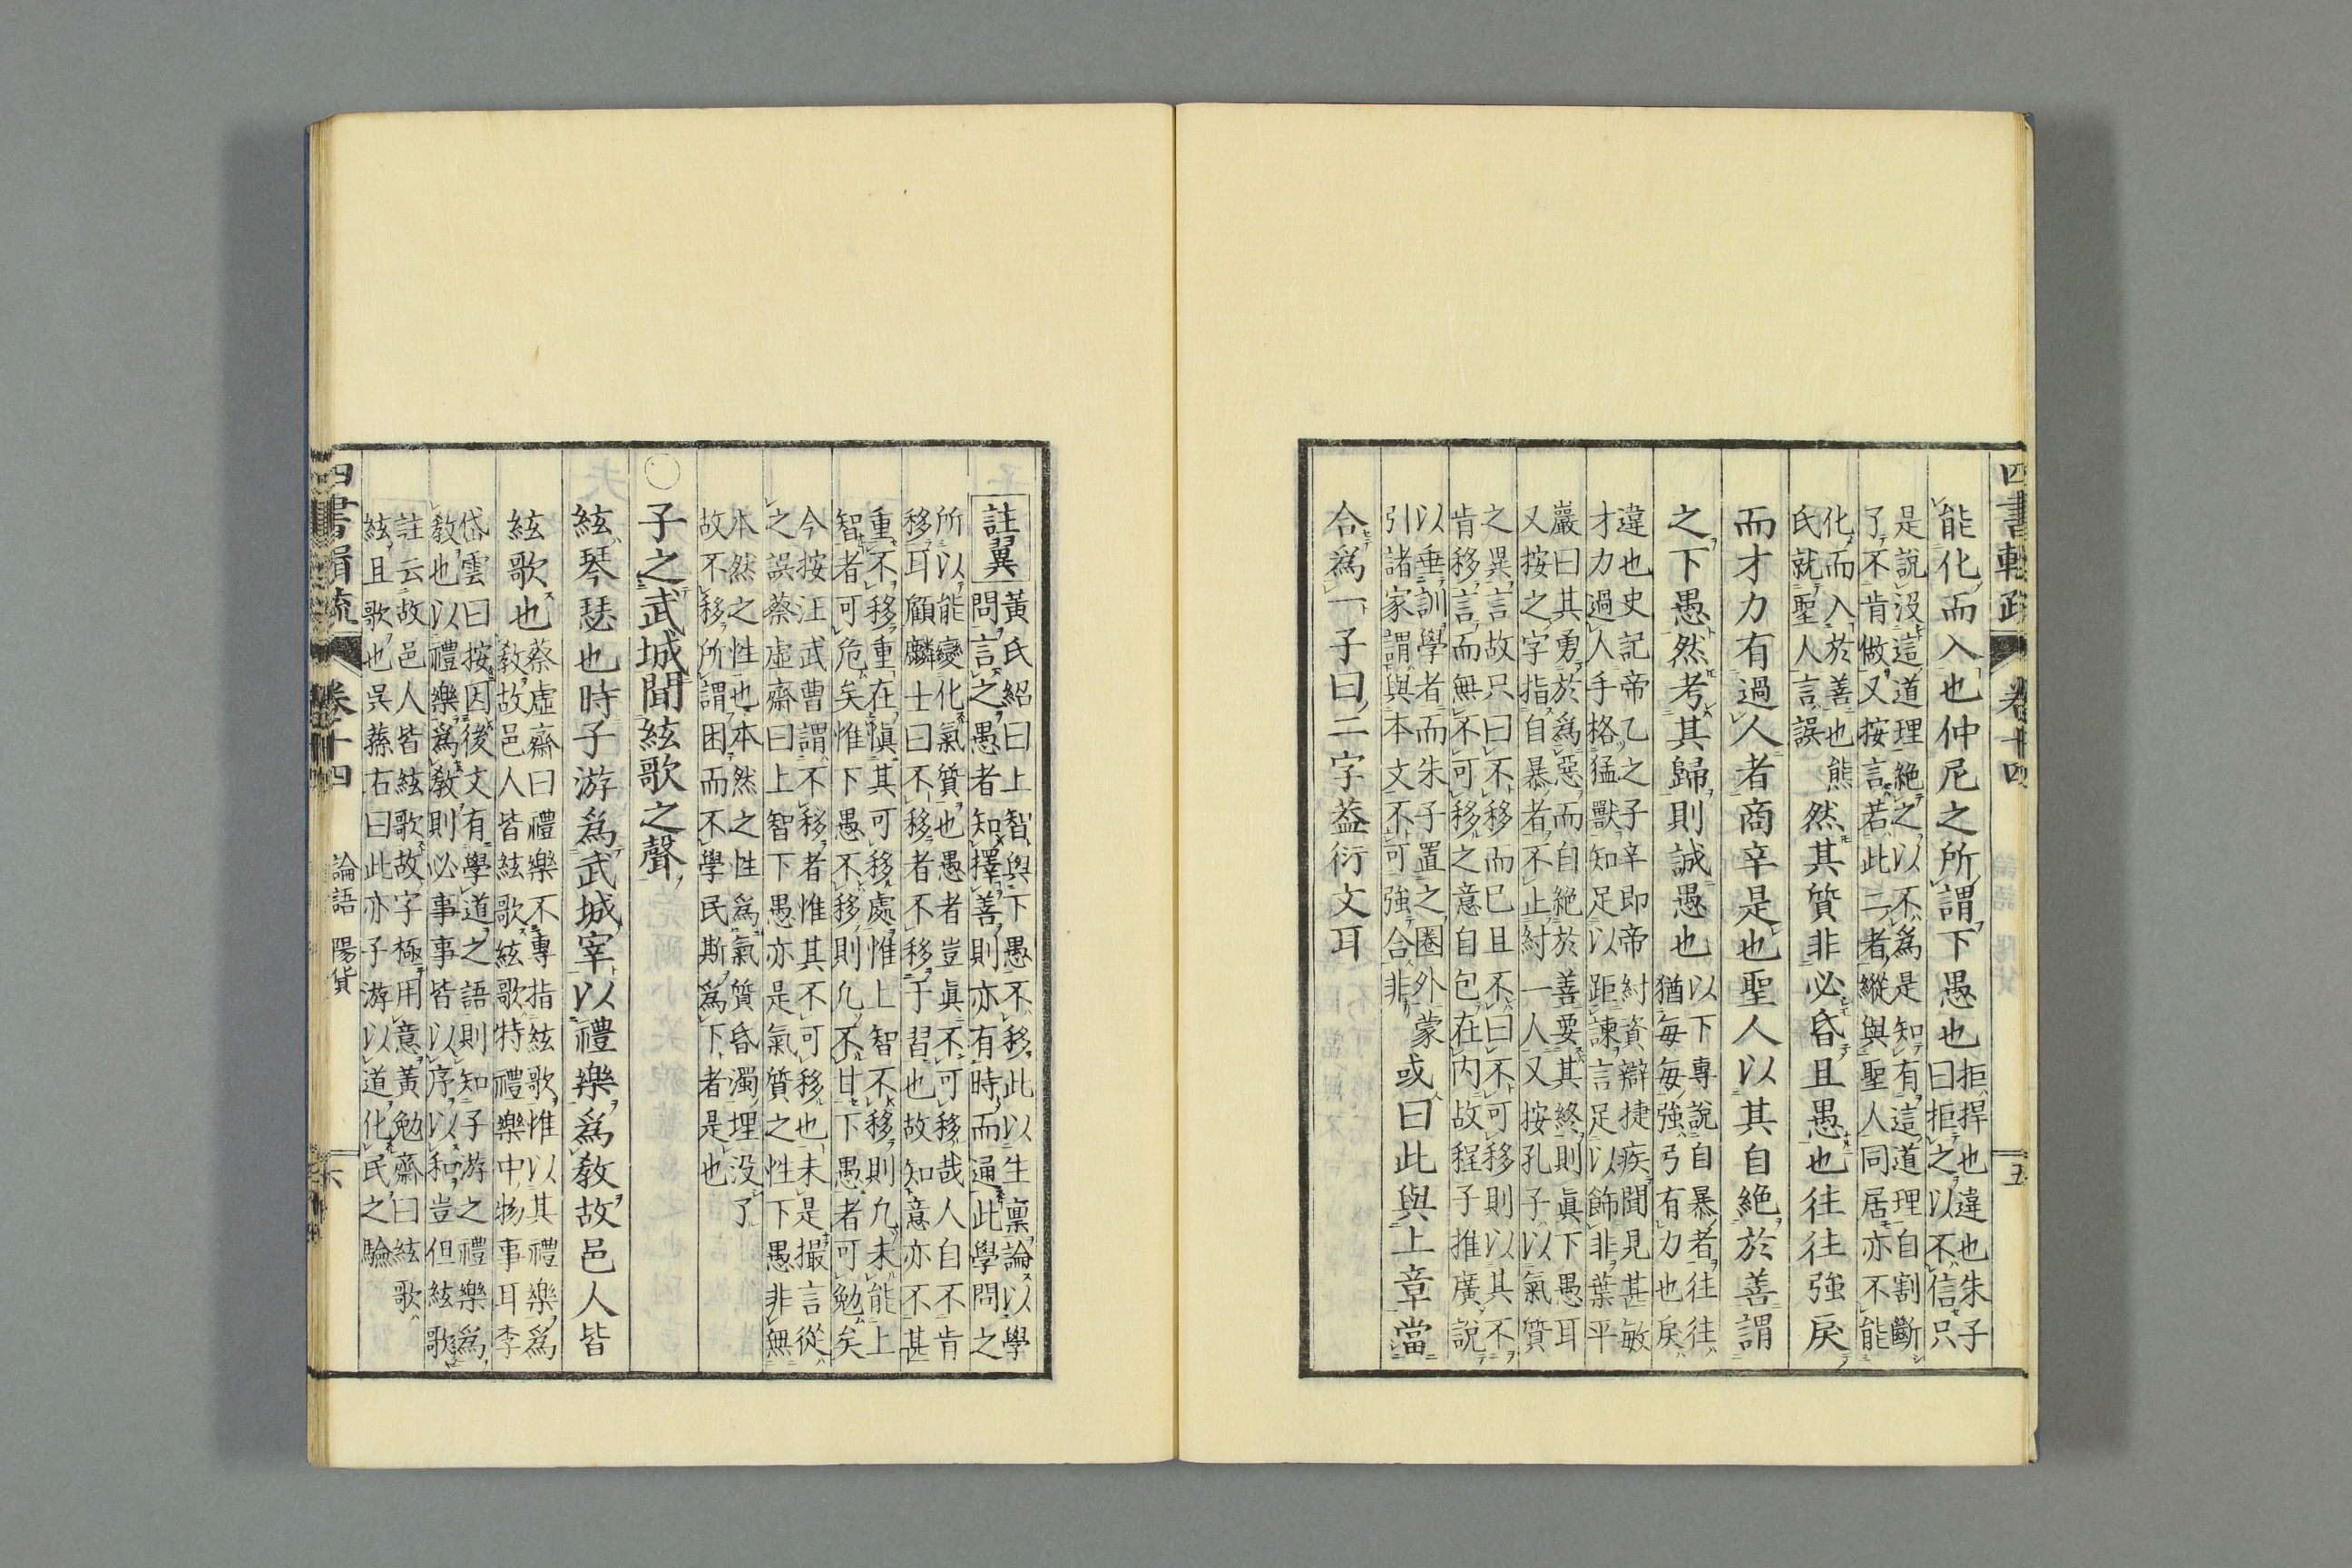 四書輯疏 卷十四 五
能化而入也仲尼之所謂下愚也拒捍也違也朱子曰拒之以不信只
是說沒這道理絕之以不爲是知有這道理自割斷
了不肯做又按言若此二者縱與聖人同居亦不能
化而入於善也熊氏就聖人言誤然其質非必昏且愚也往往強戾
而才力有過人者商辛是也聖人以其自絕於善謂
之下愚然考其歸則誠愚也以下專說自暴者往往猶每每強弓有力也戾
違也史記帝乙之子辛即帝紂資辯捷疾聞見甚敏
才力過人手格猛獸知足以距諫言足以飾非葉平
巖曰其勇於爲惡而自絕於善要其終則眞下愚耳
又按之字指自暴者不止紂一人又按孔子以氣質
之異言故只曰不移而已且不曰不可移則以其不
肯移言而無不可移之意自包在内故程子推廣說
以垂訓學者而朱子置之圈外蒙
引諸家謂與本文不可強合非或曰此與上章當
合爲一子曰二字葢衍文耳
註翼黃氏紹曰上智與下愚不移此以生稟論以學
問言之愚者知擇善則亦有時而通此學問之
所以能變化氣質也愚者豈眞不可移哉人自不肯
移耳顧麟士曰不移者不移于習也故知意亦不甚
重不移重在愼其可移處惟上智不移則凡未能上
智者可危矣惟下愚不移則凡不甘下愚者可勉矣
今按汪武曹謂不移者惟其不可移也未是撮言從
之誤蔡虛齋曰上智下愚亦是氣質之性下愚非無
本然之性也本然之性爲氣質昏濁埋没了
故不移所謂困而不學民斯爲下者是也
○子之武城聞絃歌之聲
絃琴瑟也時子游爲武城宰以禮樂爲教故邑人皆
絃歌也蔡虛齋曰禮樂不專指絃歌惟以其禮樂爲
教故邑人皆絃歌絃歌特禮樂中物事耳李
岱雲曰按因後文有學道之語則知子游之禮樂爲
教也以禮樂爲教則必事事皆以序以和豈但絃歌
註云故邑人皆絃歌故字極用意黃勉齋曰絃歌
絃且歌也吳蓀右曰此亦子游以道化民之驗
四書輯疏 卷十四 論語 陽貨 六